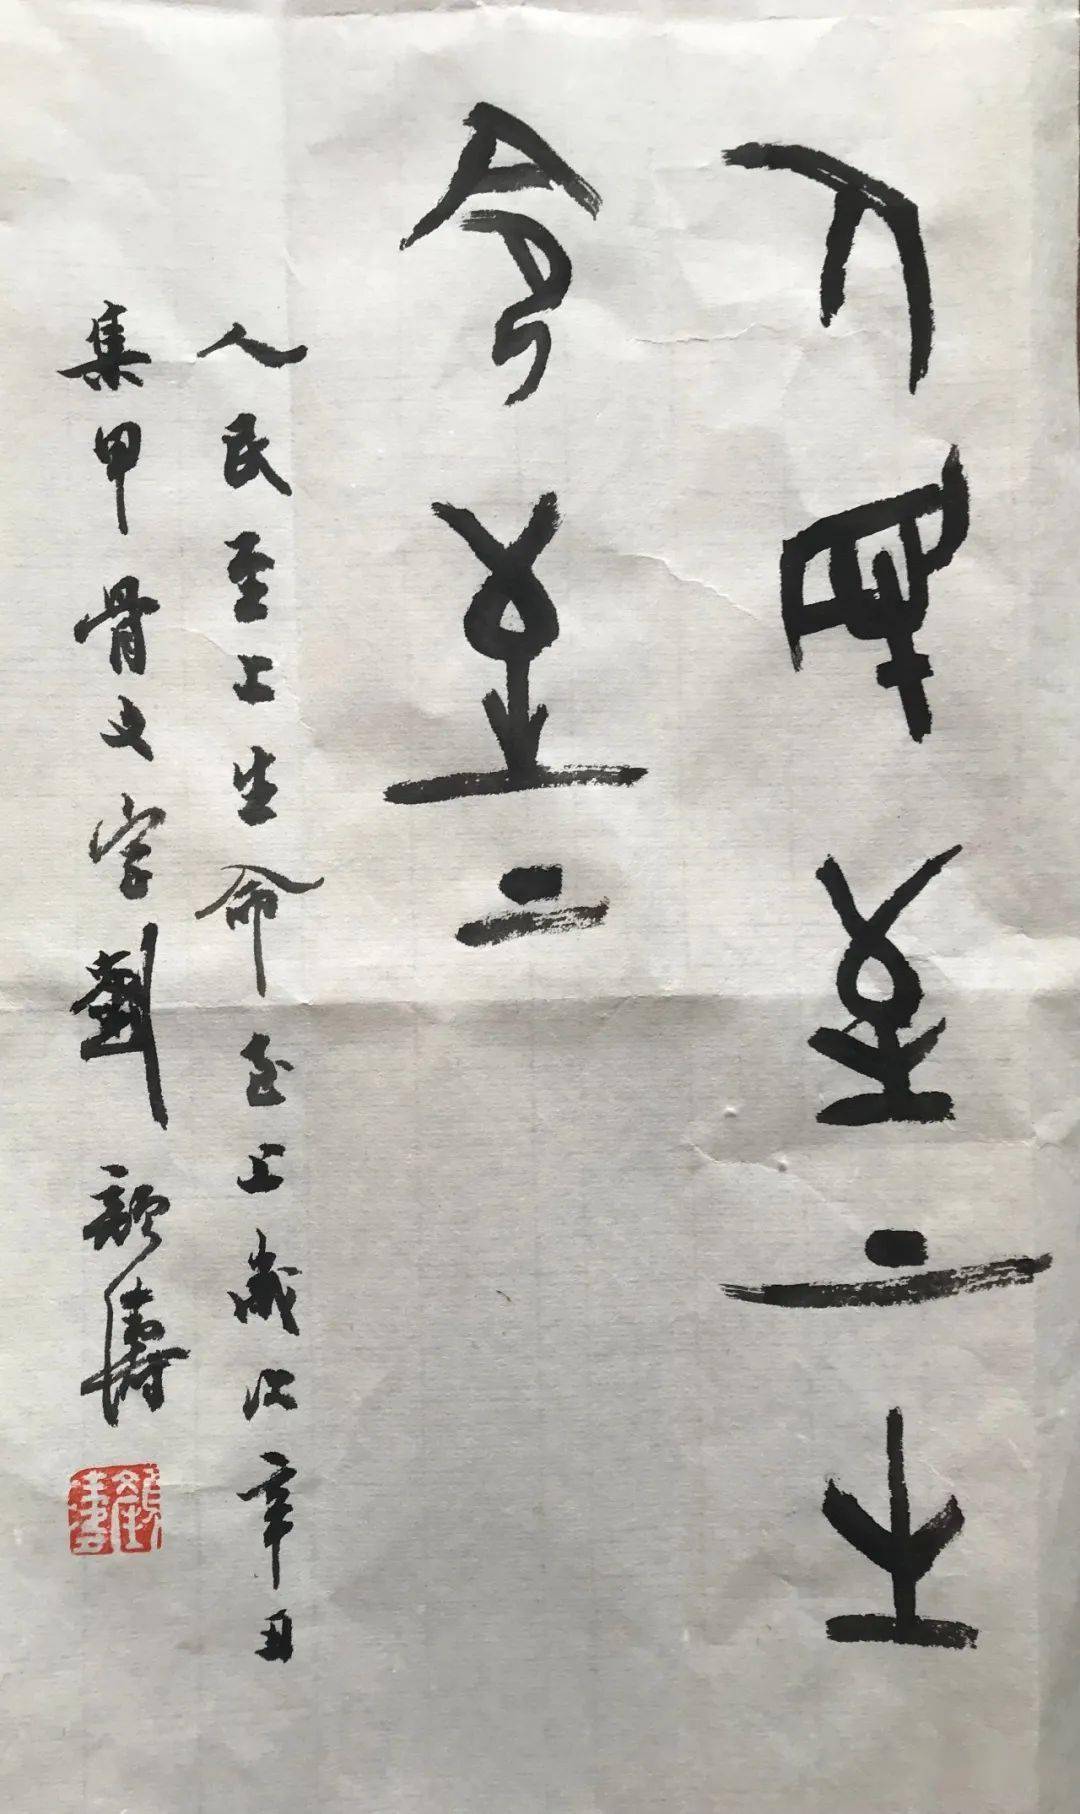 人民至上生
命至上
人民至上生命至上歲次辛丑
集甲骨文字劉顏濤